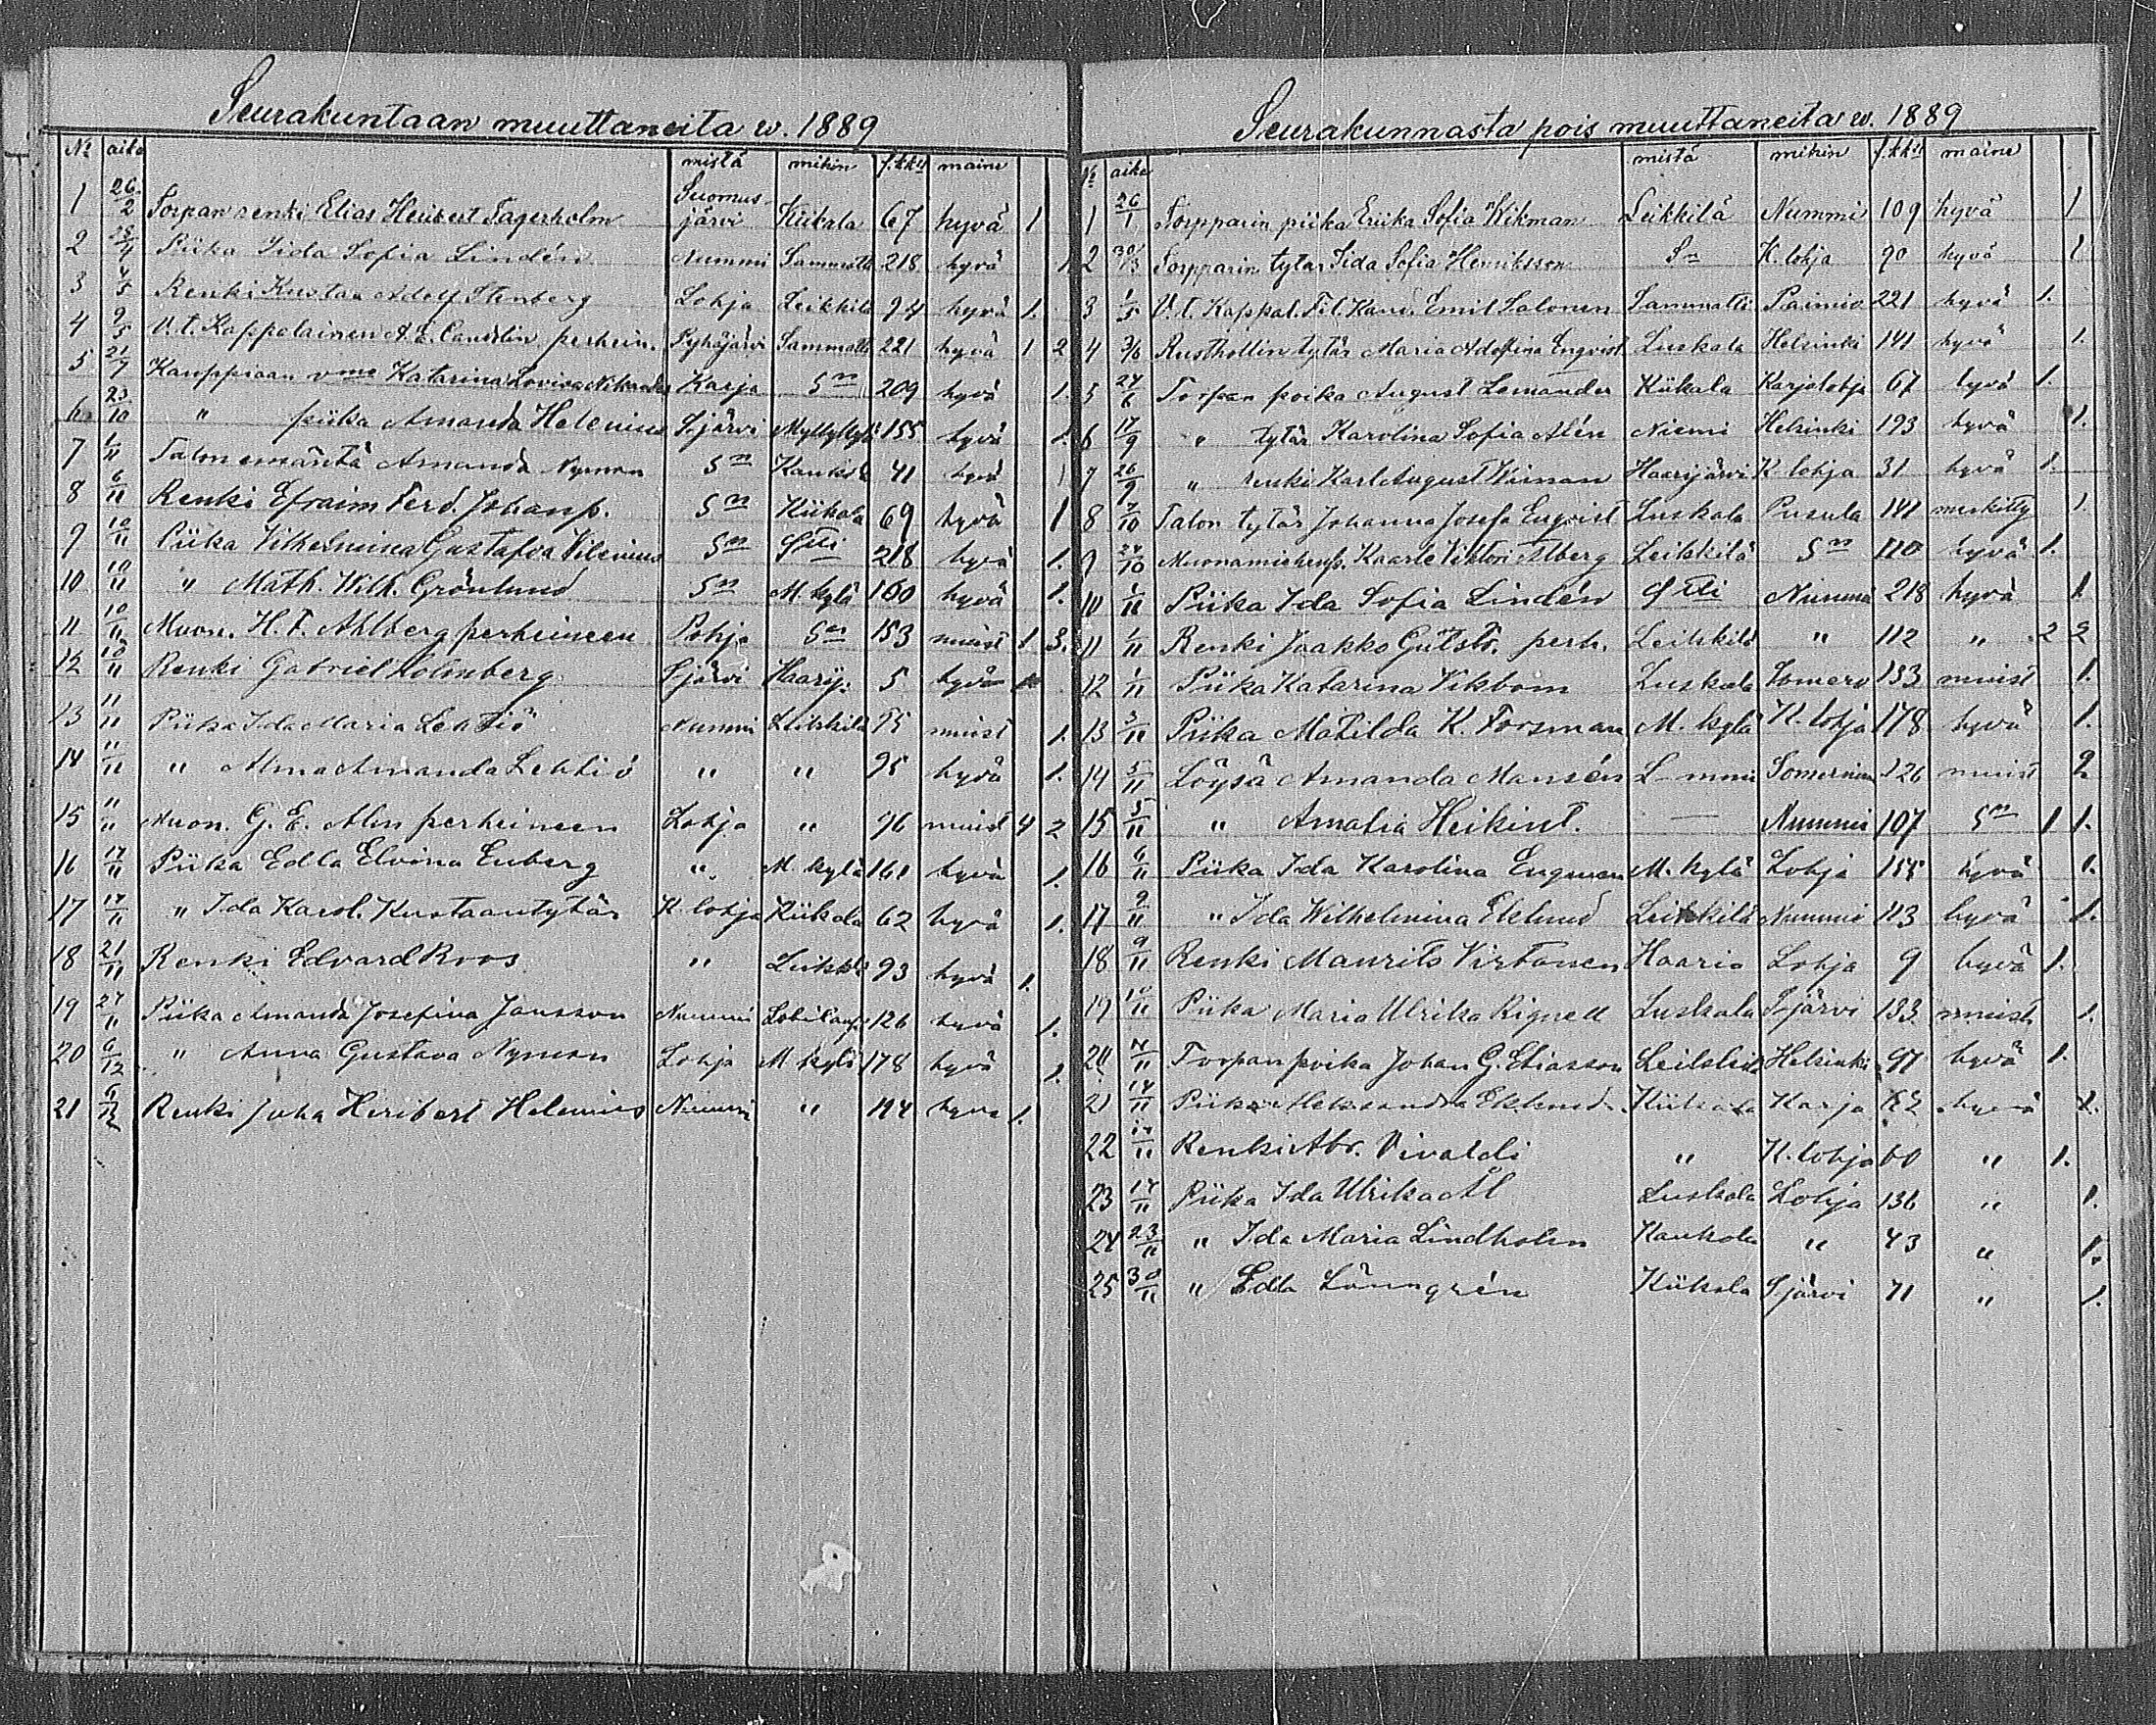 Seurakuntaan muuttaneita w. 1889
№ aika mistä mihin s.kk:n maine
1 26/2 Torpan renki Elias Heribert Fagerholm Suomusjärvi Kiikala 67 hyvä 1
2 Piika Iida Sofia Lindén Nummi Sammatti 218 hyvä 1
3 4/5 Renki Kustaa Adolf Stenberg Lohja Leikkilä 94 hyvä 1.
4 9/5 V.t. Kappelainen A. E. perhein. Pyhäjärvi Sammatti 221 hyvä 1 2
5 21/7 Kauppiaan Katarina Loviisa Karja Sm 209 hyvä 1.
6 23/10 " piika Amanda Helenius Sjärvi Myllykylä 155 hyvä 1
7 1/11 Talon emäntä Amanda Nyman Sm 41 hyvä 1
8 6/11 Renki Efraim Ferd. Johanp. Sm Kiikala 69 hyvä 1
9 10/11 Piika Vilhelmina Gustafva Vilenius Sm Stti 218 hyvä 1.
10 10/11 " Math. Wilh. Grönlund Sm M. kylä 160 hyvä 1.
11 10/11 Muon. H. F. Ahlberg perheineen Pohja Sm 153 muist 1 3.
12 10/11 Renki Gabriel Holmberg Sjärvi Haarij. 5 hyvä
13 11/11 Piika Ida Maria Lehtiö Nummi Leikkilä 95 muist 1.
14 11/11 " Alma Amanda Lehtiö " " 95 hyvä 1.
15 11/11 Muon. G. E. Alin perheineen Lohja " 96 muist 4 2
16 14/11 Piika Edla Elvina Enberg " M. kylä 161 hyvä 1.
17 14/11 " Ida Karol. Kustaantytär K. lohja Kiikala 62 hyvä 1.
18 21/11 Renki Edvard Roos " Leikkilä 93 hyvä 1.
19 27/11 Piika Amanda Josefina Jansson Nummi 126 hyvä 1.
20 6/12 " Anna Gustava Nyman Lohja M. kylä 178 hyvä 1.
21 6/12 Renki Juha Heribert Helenius Nummi " hyvä 1.
Seurakunnasta pois muuttaneita w. 1889
№ aika mistä mihin s.kk:n maine
1 26/1 Torpparin piika Eriika Sofia Wikman Leikkilä Nummi 109 hyvä 1
2 30/3 Torpparin tytär Iida Sofia Henriksson Sm K. lohja 90 hyvä 1
3 1/5 V.t. Kappal. Fil. Kand. Emil Salonen Sammatti Paimio 221 hyvä 1.
4 3/6 Rusthollin tytär Maria Adolfina Enqvist Luskala Helsinki 141 hyvä 1.
5 24/6 Torpan poika August Lemander Kiikala Karjalohja 67 hyvä 1.
6 17/9 " tytär Karolina Sofia Alén Niemi Helsinki 193 hyvä 1.
7 26/9 " renki Karl August Haarijärvi K lohja 31 hyvä 1.
8 7/10 Talon tytär Johanna Josefa Enqvist Luskala Pusula 141 merkitty 1.
9 24/10 Muonamiehenp. Kaarle Viktori Alberg Leikkilä Sm 110 hyvä 1.
10 1/11 Piika Ida Sofia Lindén Stti Nummi 218 hyvä 1
11 1/11 Renki Jaakko Gutstr. perh. Leikkilä " 112 " 2 2
12 1/11 Piika Katarina Vikbom Luskala Somero 133 muist 1.
13 3/11 Piika Matilda K. Forsman M. kylä K. lohja 178 hyvä 1.
14 5/11 Löysä Amanda Mansén L-mmi 126 muist 2.
15 5/11 " Amalia Heikint. — Nummi 107 Sm 1 1.
16 6/11 Piika Ida Karolina Engman M. kylä Lohja 155 hyvä 1.
17 9/11 " Ida Wilhelmina Eklund Leikkilä Nummi 113 hyvä 1.
18 9/11 Renki Maurits Virtanen Haario Lohja 9 hyvä 1.
19 10/11 Piika Maria Ulrika Rignell Luskala Sjärvi 133 muist 1.
20 Torpan poika Johan G. Eliasson Leikkilä Helsinki 97 hyvä 1.
21 14/11 Piika Aleksandra Eklund Kiikala Karja hyvä 1.
22 14/11 Renki Abr. Vivaldi " K. lohja 60 " 1.
23 14/11 Piika Ida Ulrika Ål Luskala Lohja 136 " 1.
24 23/11 " Ida Maria Lindholm Kaukola " 43 " 1.
25 30/11 " Edla Lönngrén Kiikala Sjärvi 71 " 1.